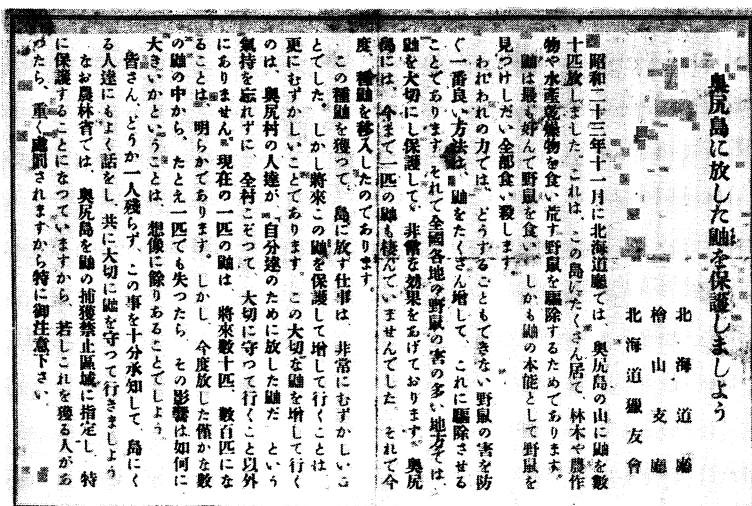 奥尻島に放した鼬を保護しましよう
北海道廳
檜山支廳
北海道獵友會
昭和二十三年十一月に北海道廳では、奥尻島の山に鼬を數
十匹放しました。これは、この島にたくさん居て、林木や農作
物や水産乾燥物を食い荒す野鼠を驅除するためであります。
鼬は最も好んで野鼠を食い、しかも鼬の本能として野鼠を
見つけしだい全部食い殺します。
われわれの力では、どうすることもできない野鼠の害を防
ぐ一番良い方法は、鼬をたくさん増して、これに驅除させる
ことであります。それで全國各地の野鼠の害の多い地方では、
鼬を大切にし保護して、非常な効果をあげております。奥尻
島には、今まで一匹の鼬も棲んでいませんでした。それで今
度、種鼬を移入したのであります。
この種鼬を獲つて、島に放す仕事は、非常にむずかしいこ
とでした。しかし將來この鼬を保護して増して行くことは、
更にむずかしいことであります。この大切な鼬を増して行く
のは、奥尻村の人達が、自分達のために放した鼬だ、という
氣持を忘れずに、全村こぞつて、大切に守つて行くこと以外
にありません。現在の一匹の鼬は、將來數十匹、數百匹にな
ることは、明らかであります。しかし、今度放した僅かな數
の鼬の中から、たとえ一匹でも失つたら、その影響は如何に
大きいかということは、想像に餘りあることでしよう。
皆さん、どうか一人殘らず、この事を十分承知して、島にく
る人達にもよく話をし、共に大切に鼬を守つて行きましよう
なお農林省では、奥尻島を鼬の捕獲禁止區域に指定し、特
に保護することになつていますから、若しこれを獲る人があ
つたら、重く處罰されますから特に御注意下さい。